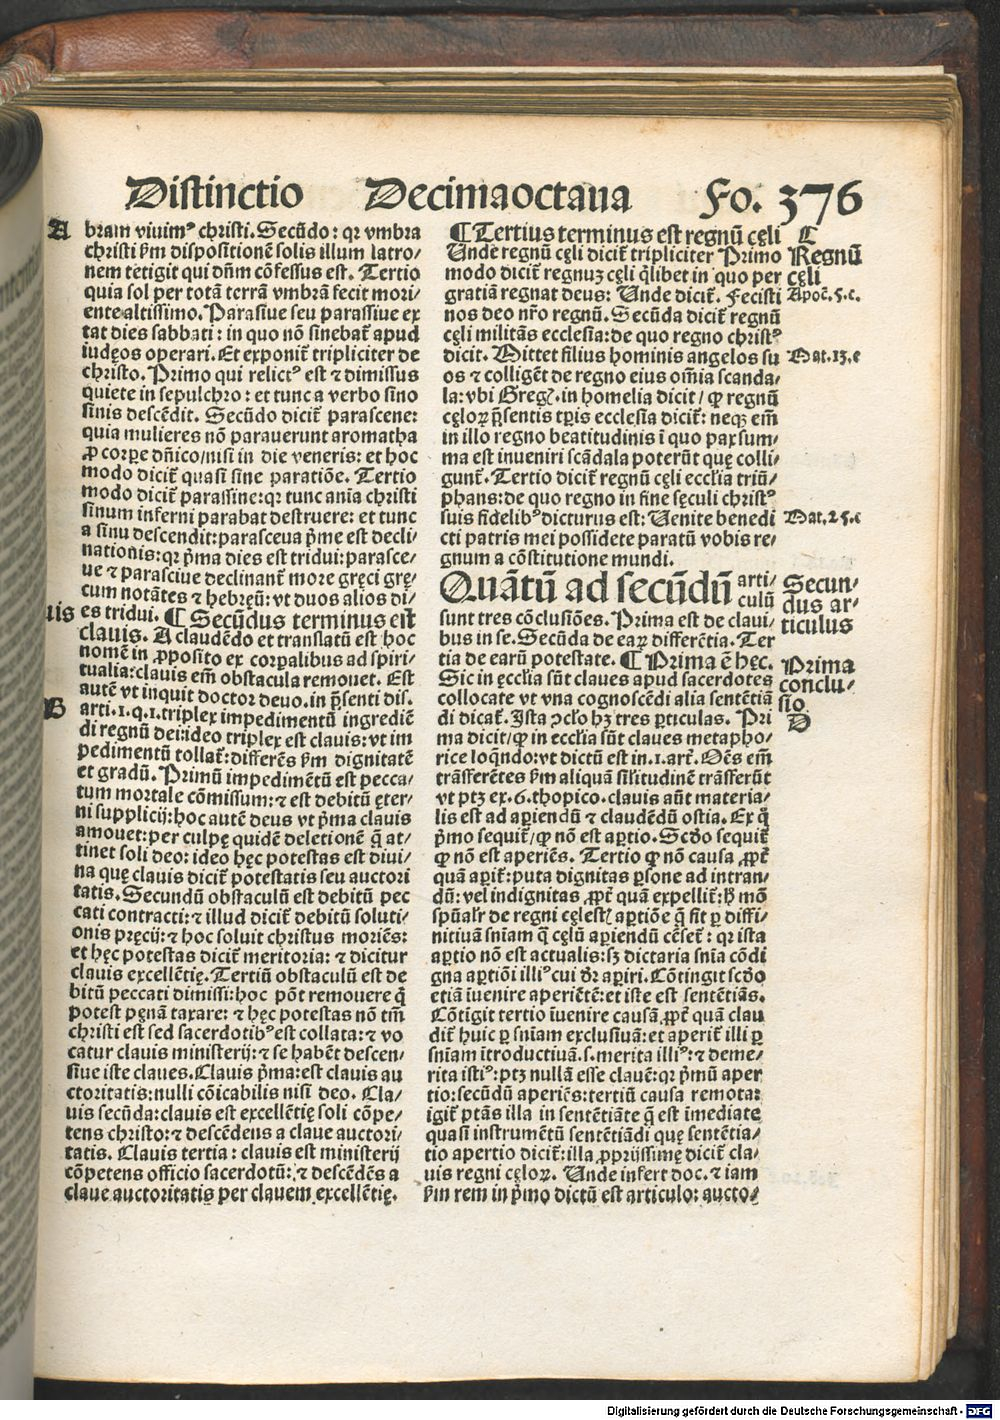 Distinctio Decimaoctaua Fo. 376
A
bram viuimꝰ christi. Secũdo: qr vmbra
christi ẜm dispositionẽ solis illum latro/
nem tetigit qui dñm cõfessus est. Tertio
quia sol per totã terrã vmbrã fecit mori/
ente altissimo. Parasiue seu parassiue ex
tat dies sabbati: in quo nõ sinebat̃ apud
iudęos operari. Et exponit̃ tripliciter de
christo. Primo qui relictꝰ est ⁊ dimissus
quiete in sepulchro: et tunc a verbo sino
sinis descẽdit. Secũdo dicit̃ parascene:
quia mulieres nõ parauerunt aromatha
ꝓ corꝑe dñico/nisi in die veneris: et hoc
modo dicit̃ quasi sine paratiõe. Tertio
modo dicit̃ parassine: qr tunc ania christi
sinum inferni parabat destruere: et tunc
a sinu descendit: parasceua p̃me est decli
nationis: qr p̃ma dies est tridui: parasce/
ue ⁊ parasciue declinant̃ more gręci grę/
cum notãtes ⁊ hebręũ: vt duos alios di/
es tridui. ¶ Secũdus terminus est
uis
clauis. A claudẽdo et translatũ est hoc
nomẽ in ꝓposito ex corꝑalibus ad spiri/
tualia: clauis em̃ obstacula remouet. Est
autẽ vt inquit doctor deuo. in p̃senti dis.
B
arti. 1. q. 1. triplex impedimentũ ingrediẽ
di regnũ dei: ideo triplex est clauis: vt im
pedimentũ tollat̃: differẽs ẜm dignitatẽ
et gradũ. Primũ impedimẽtũ est pecca/
tum mortale cõmissum: ⁊ est debitũ ęter/
ni supplicij: hoc autẽ deus vt p̃ma clauis
amouet: per culpę quidẽ deletionẽ q̃ at/
tinet soli deo: ideo hęc potestas est diui/
na quę clauis dicit̃ potestatis seu auctori
tatis. Secundũ obstaculũ est debitũ pec
cati contracti: ⁊ illud dicit̃ debitũ soluti/
onis pręcij: ⁊ hoc soluit christus moriẽs:
et hęc potestas dicit̃ meritoria: ⁊ dicitur
clauis excellẽtię. Tertiũ obstaculũ est de
bitũ peccati dimissi: hoc põt remouere q̃
potest pęnã taxare: ⁊ hęc potestas nõ tm̃
christi est sed sacerdotibꝰ est collata: ⁊ vo
catur clauis ministerij: ⁊ se habẽt descen/
siue iste claues. Clauis p̃ma: est clauis au
ctoritatis: nulli cõicabilis nisi deo. Cla/
uis secũda: clauis est excellẽtię soli cõpe/
tens christo: ⁊ descẽdens a claue auctori/
tatis. Clauis tertia: clauis est ministerij
cõpetens officio sacerdotũ: ⁊ descẽdẽs a
claue auctoritatis per clauem excellẽtię.
¶ Tertius terminus est regnũ cęli
C
Regnũ
cęli
Unde regnũ cęli dicit̃ tripliciter Primo
modo dicit̃ regnuꝫ cęli q̃libet in quo per
gratiã regnat deus: Unde dicit̃. Fecisti
Apoc̃. 5. c.
nos deo nr̃o regnũ. Secũda dicit̃ regnũ
cęli militãs ecclesia: de quo regno christꝰ
dicit. Mittet filius hominis angelos su
Mat. 13. e
os ⁊ colligẽt de regno eius om̃ia scanda/
la: vbi Greg. in homelia dicit/ ꝙ regnũ
cęloꝝ p̃sentis tꝑis ecclesia dicit̃: neqꝫ em̃
in illo regno beatitudinis ĩ quo pax sum/
ma est inueniri scãdala poterũt quę colli/
gunt̃. Tertio dicit̃ regnũ cęli eccl̃ia triũ/
phans: de quo regno in fine sęculi christꝰ
suis fidelibꝰ dicturus est: Uenite benedi
Mat. 25. c
cti patris mei possidete paratũ vobis re/
gnum a cõstitutione mundi.
Quãtũ ad secũdũ arti/
culũ
Secun/
dus ar/
ticulus
sunt tres cõclusiões. Prima est de claui/
bus in se. Secũda de eaꝝ differẽtia. Ter
tia de earũ potestate. ¶ Prima ẽ hęc.
Prima
conclu/
sio.
D
Sic in ęccl̃ia sũt claues apud sacerdotes
collocate vt vna cognoscẽdi alia sentẽtiã
di dicat̃. Ista ↄclo hꝫ tres ꝑticulas. Pri
ma dicit/ꝙ in eccl̃ia sũt claues metapho/
rice loq̃ndo: vt dictũ est in. 1. art̃. Oẽs em̃
trãsferẽtes ẜm aliquã sil̃itudinẽ trãsferũt
vt ptꝫ ex. 6. thopico. clauis aũt materia/
lis est ad aꝑiendũ ⁊ claudẽdũ ostia. Ex q̃
p̃mo sequit̃/ꝙ nõ est aꝑtio. Scd̃o sequit̃
ꝙ nõ est aperiẽs. Tertio ꝙ nõ causa ꝓpt̃
quã aꝑit̃: puta dignitas ꝑsone ad intran/
dũ: vel indignitas ꝓpt̃ quã expellit̃: h̃ mõ
sp̃ual̃r de regni cęlestꝭ aꝑtiõe q̃ fit ꝑ diffi/
nitiuã sn̄iam q̃ cęlũ aꝑiendũ cẽset̃: qr ista
aꝑtio nõ est actualis: sꝫ dictaria sn̄ia cõdi
gna aꝑtiõi illiꝰ cui d̃r aꝑiri. Cõtingit scd̃o
etiã ĩuenire aperiẽtẽ: et iste est sentẽtiãs.
Cõtigit tertio ĩuenire causã ꝓpt̃ quã clau
dit̃ huic ꝑ sn̄iam exclusiuã: et aperit̃ illi ꝑ
sn̄iam ĩtroductiuã. s. merita illiꝰ: ⁊ deme/
rita istiꝰ: ptꝫ nullã esse clauẽ: qr p̃mũ aper
tio: secũdũ aperiẽs: tertiũ causa remota:
igit̃ ptãs illa in sentẽtiãte q̃ est ĩmediate
quasi instrumẽtũ sentẽtiãdi quę sentẽtia/
tio apertio dicit̃: illa ꝓprijssimę dicit̃ cla/
uis regni cęloꝝ. Unde infert doc. ⁊ iam
ẜm rem in p̃mo dictũ est articulo: aucto/
Digitalisierung gefördert durch die Deutsche Forschungsgemeinschaft - DFG